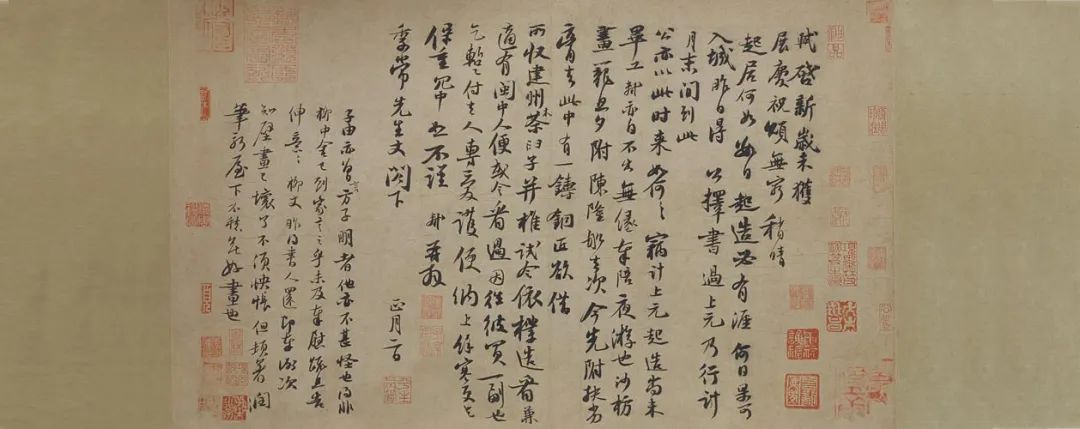 軾啓新歲未獲
展慶祝頌無窮稍晴
起居何如數日起造必有涯何日果可
入城昨日得公擇書過上元乃行計
月末間到此
公亦以此時來如何〻竊計上元起造尚未
畢工軾亦自不出無緣奉陪夜游也沙枋
畫籠旦夕附陳隆舡去次今先附扶劣
膏去此中有一鑄銅匠欲借
所收建州木茶臼子并椎試令依樣造看兼
適有閩中人便或令看過因往彼買一副也
乞暫付去人專愛護便納上餘寒更乞
保重冗中恕不謹 軾再拜
季常先生丈閣下 正月二日
子由亦曾言方子明者他亦不甚怪也得非
柳中舍已到家言之乎未及奉慰疏且告
伸意〻柳丈昨得書人還即奉謝次
知壁畫已壞了不須怏悵但頓著潤
筆新屋下不愁無好畫也